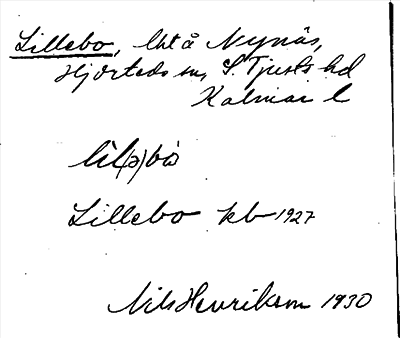 Lillebo, lht å Nynäs,
Hjorteds sn, S. Tjusts hd
Kalmar l
lìl(ə)bò
Lillebo kb 1927
Nils Henrikson 1930